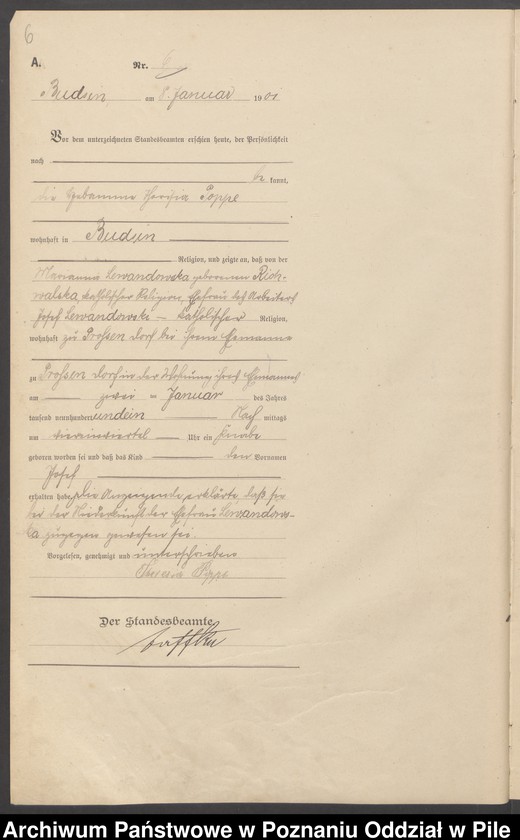 6
A.
Nr. 6
Budsin am 8. Januar 1901
Vor dem unterzeichneten Standesbeamten erschien heute, der Persönlichkeit
nach
be kannt,
die Hebamme Theresia Poppe
wohnhaft in Budsin
Religion, und zeigte an, daß von der
Marianna Lewandowska geborenen
katholischer Religion, Ehefrau des Arbeiters
Josef Lewandowski katholischer Religion,
wohnhaft zu Prossen dorf bei ihrem Ehemanne
zu Prossen dorf in der Wohnung ihres Ehemannes
am zwei ten Januar des Jahres
tausend neunhundert undein Nach mittags
um Uhr ein Knabe
geboren worden sei und daß das Kind den Vornamen
Josef
erhalten habe. Die Anzeigende erklärte, daß sie
bei der Niederkunft der Ehefrau Lewandows-
ka zugegen gewesen sei.
Vorgelesen, genehmigt und unterschrieben
Theresia Poppe
Der Standesbeamte.
Archiwum Państwowe w Poznaniu Oddział w Pile